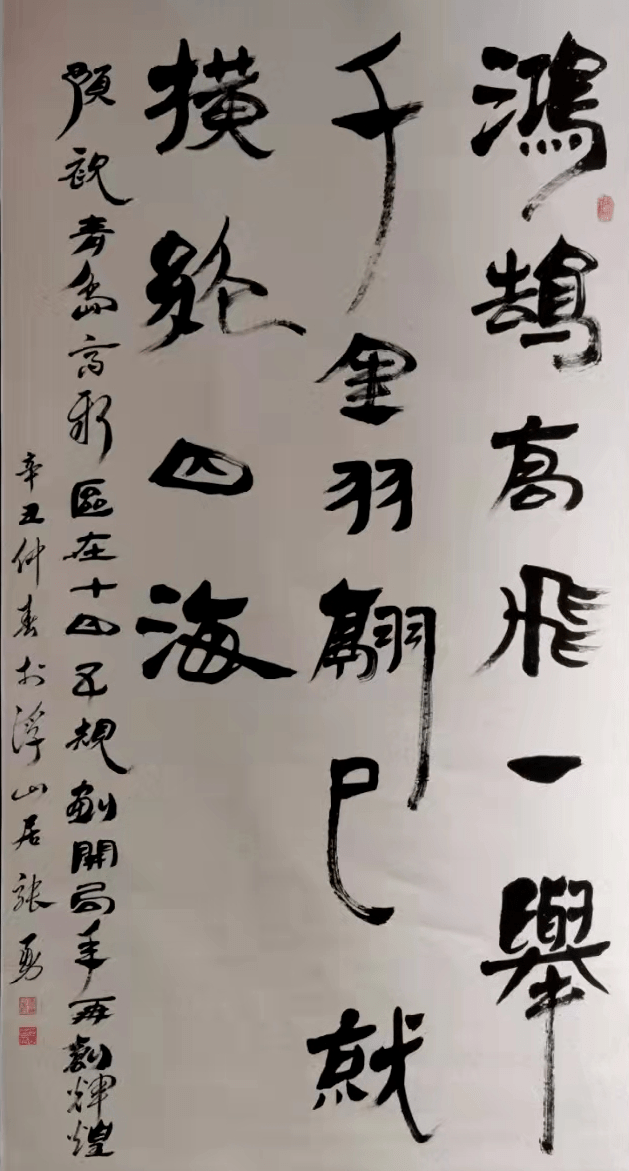 鴻鵠高飛一舉
千里羽翮已就
橫絕四海
預祝青島高新區在十四五規劃開局年再創輝煌
辛丑仲春於浮山居張勇